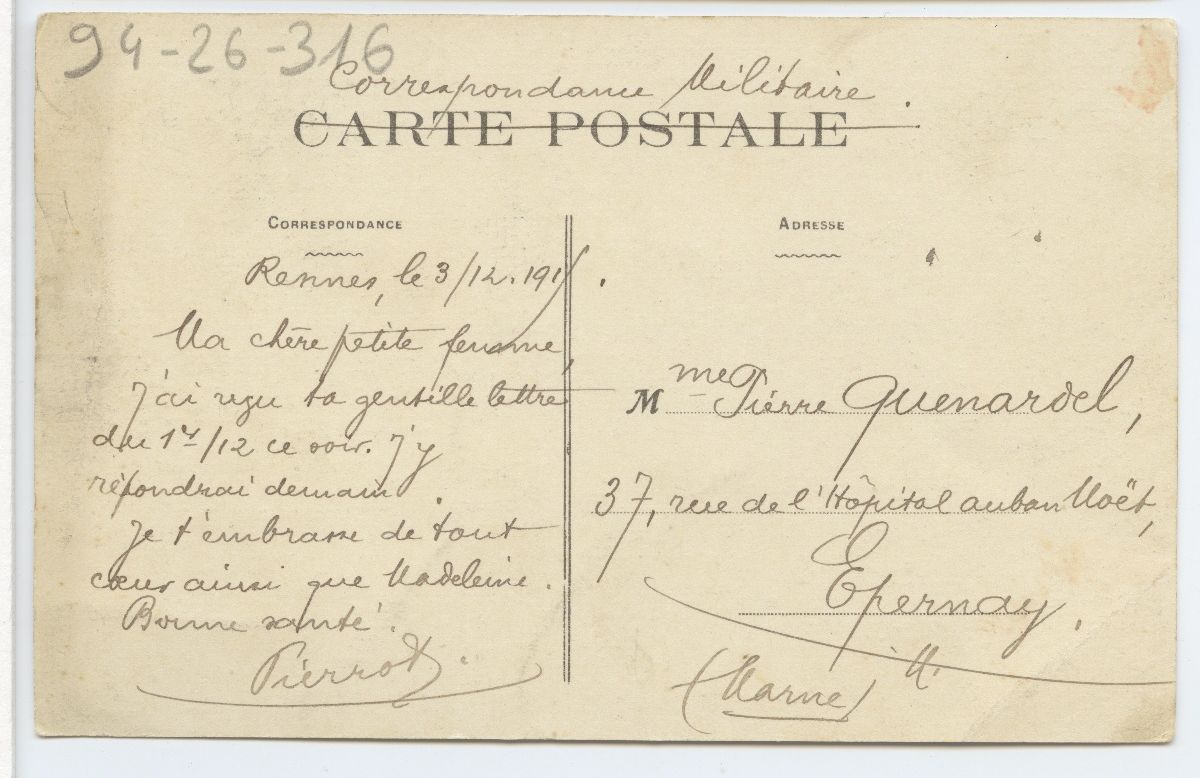 94-26-316
Correspondance Militaire.
CARTE POSTALE
CORRESPONDANCE
Rennes, le 3/12.191
Ma chère petite femme,
J'ai reçu ta gentille lettre
du 1er/12 ce soir. J'y
répondrai demain.
Je t'embrasse de tout
cœur ainsi que Madeleine.
Bonne santé.
Pierrot.
ADRESSE
Mme Pierre Quenardel,
37, rue de l'Hôpital auban Moët,
Epernay.
(Marne) M.